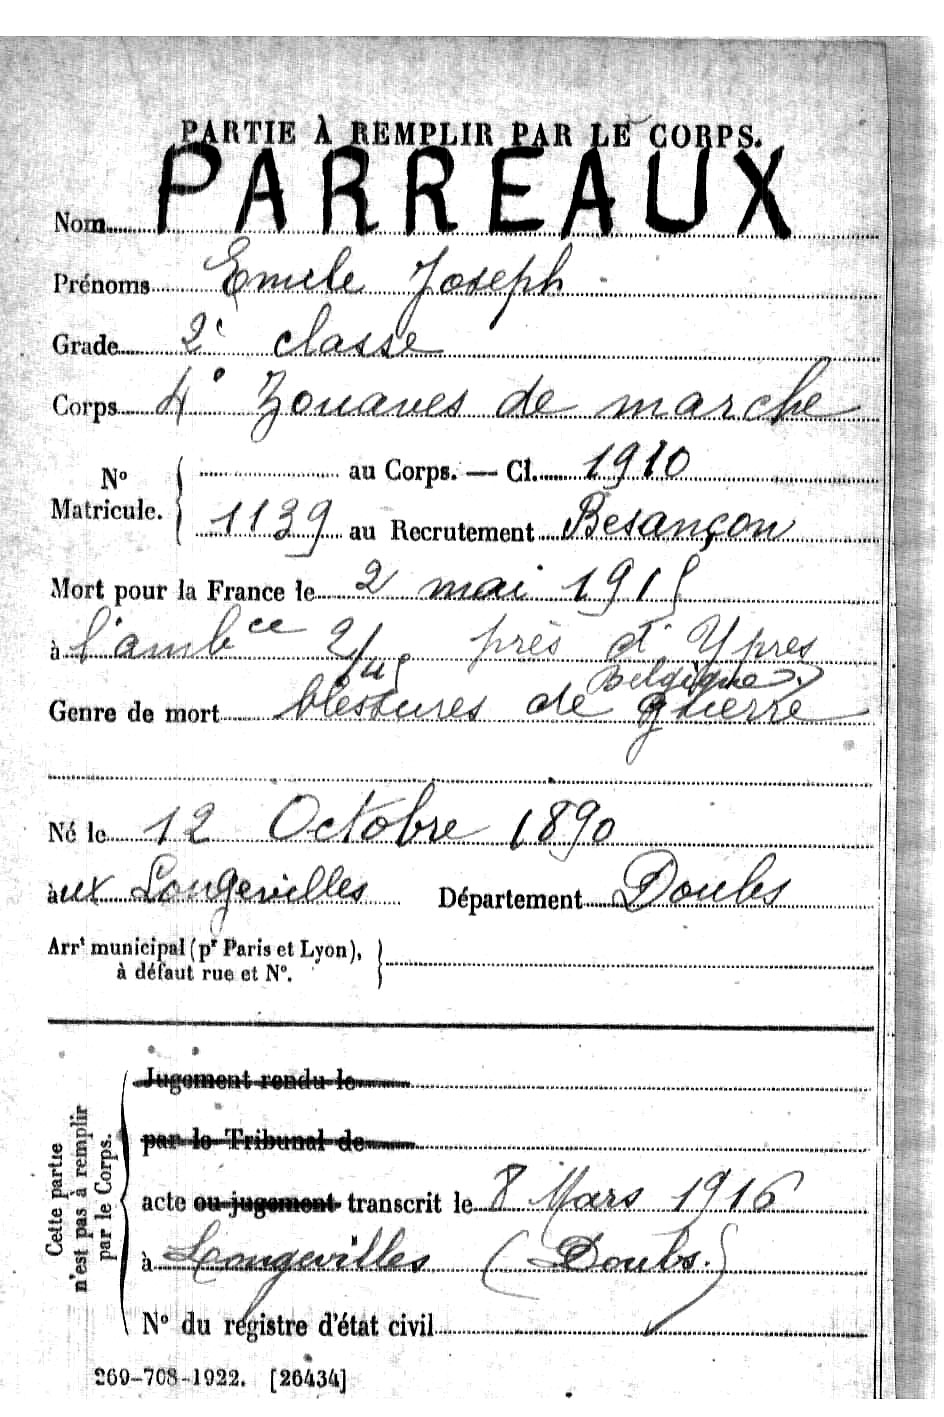 PARTIE À REMPLIR PAR LE CORPS.
Nom PARREAUX
Prénoms Emile Joseph
Grade 2e classe
Corps 4e Zouaves de marche
No Matricule. { au Corps. — Cl. 1910
1139 au Recrutement Besançon
Mort pour la France le 2 mai 1915
à l'ambce 2/45 près d'Ypres
Belgique
Genre de mort blessures de guerre
Né le 12 Octobre 1890
aux Longevilles Département Doubs
Arrt municipal (pr Paris et Lyon),
à défaut rue et No.
Cette partie n'est pas à remplir par le Corps.
Jugement rendu le
par le Tribunal de
acte ou jugement transcrit le 8 Mars 1916
à Longevilles (Doubs.)
No du registre d'état civil
269-708-1922. [26434]